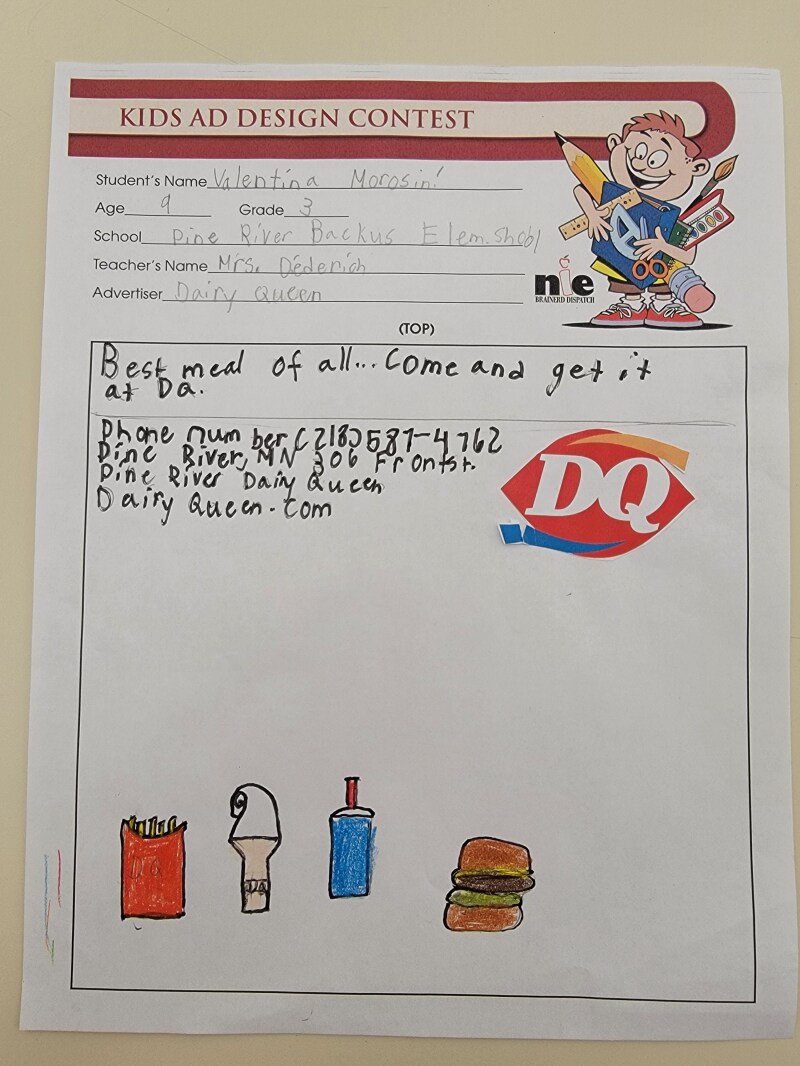 KIDS AD DESIGN CONTEST
Student's Name Valentina Morosini
Age 9 Grade 3
School Pine River Backus Elem. Shcbl
Teacher's Name Mrs. Dederich
Advertiser Dairy Queen
nie
BRAINERD DISPATCH
(TOP)
Best meal of all... Come and get it
at DQ.
Phone number (218) 587-4762
Pine River, MN 306 Front st.
Pine River Dairy Queen
Dairy Queen.com
DQ
DQ
DQ